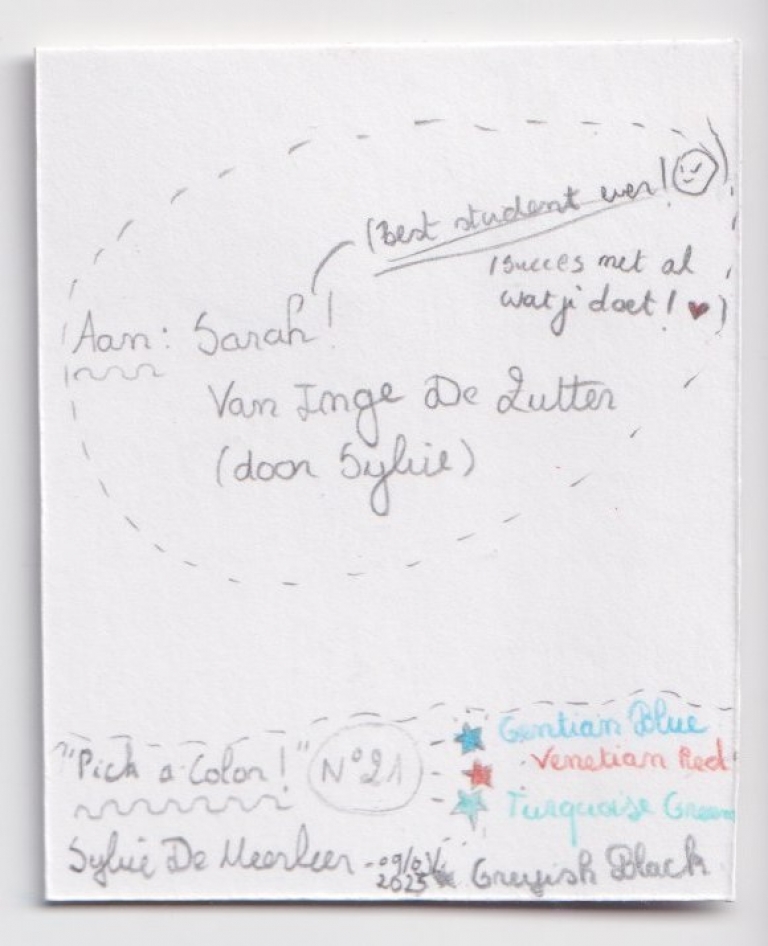 (Best student ever!
(succes met al
wat je doet! ♥)
Aan: Sarah!
Van Inge De Zutter
(door Sylvie)
"Pick a Color!" N°21
Gentian Blue
Venetian Red
Turquoise Green
Sylvie De Meerleer
2025
Greyish Black